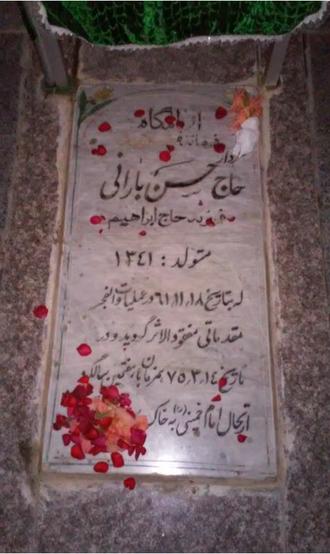 آرامگاه
سردار
حاج حسن بارانی
فرزند حاج ابراهیم
متولد : ۱۳۴۱
که بتاریخ ۶۱،۱۱،۱۸ در عملیات والفجر
مقدماتی مفقودالاثر گردید و در
تاریخ ۷۵،۳،۱۴ همزمان با هفتمین سالگرد
ارتحال امام خمینی (ره) به خاک